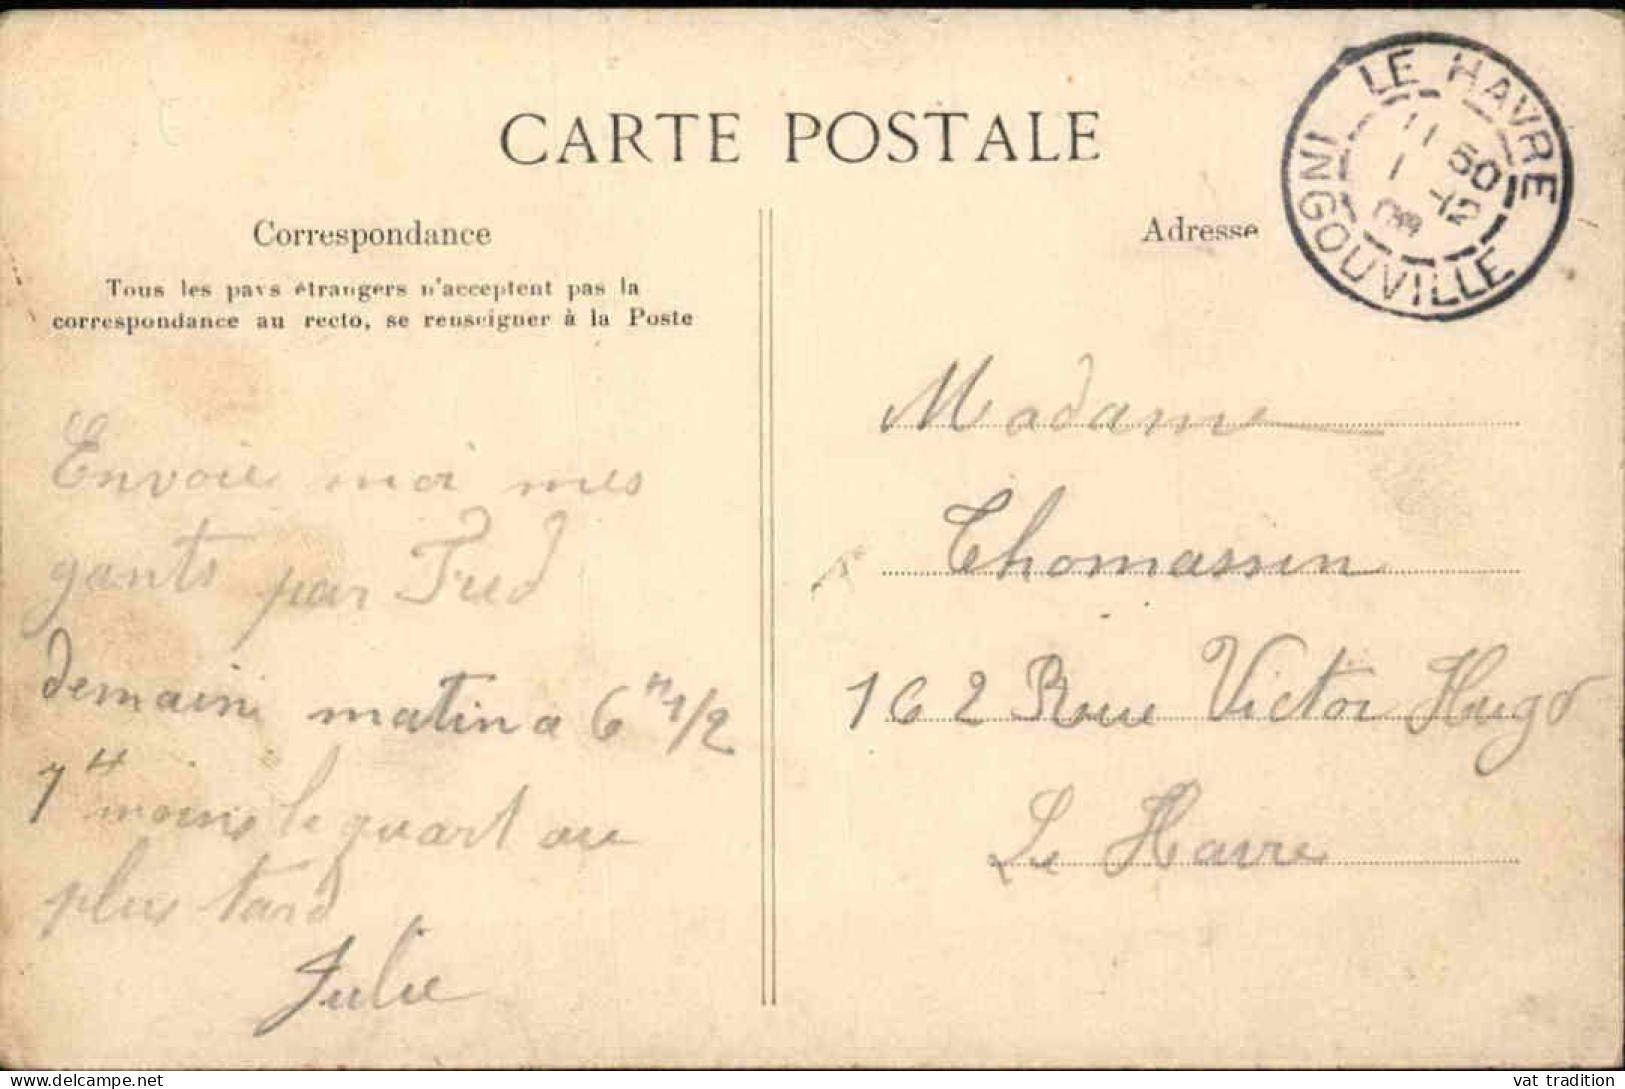 CARTE POSTALE
Correspondance
Tous les pays étrangers n'acceptent pas la
correspondance au recto, se renseigner à la Poste
Envoie moi mes
gants par Fred
demain matin a 6 H 1/2
7 H moins le quart au
plus tard
Julie
Adresse
LE HAVRE
11 50
1 -12
INGOUVILLE
Madame
Thomassin
162 Rue Victor Hugo
Le Havre
delcampe.net
vat tradition